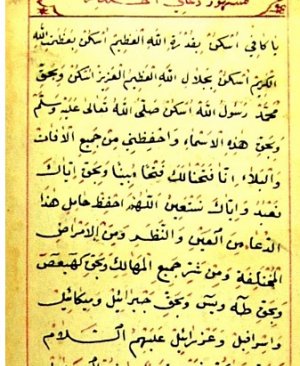 يا كافي اسكن بقدرة الله العظيم اسكن بعظمت الله
الكريم اسكن بجلال الله العظيم العزيز اسكن وبحق
محمد رسول الله اسكن صلى الله تعالى عليه وسلم
وبحق هذه الاسماء واحفظني من جميع الآفات
والبلاء انا فتحنا لك فتحا مبينا وبحق اياك
نعبد واياك نستعين اللهم احفظ حامل هذا
الدعا من العين والنظر ومن الامراض
المختلفة ومن شر جميع المهالك وبحق كهيعص
وبحق طه ويس وبحق جبرائيل وميكائيل
واسرافيل وعزرائيل عليهم السلام